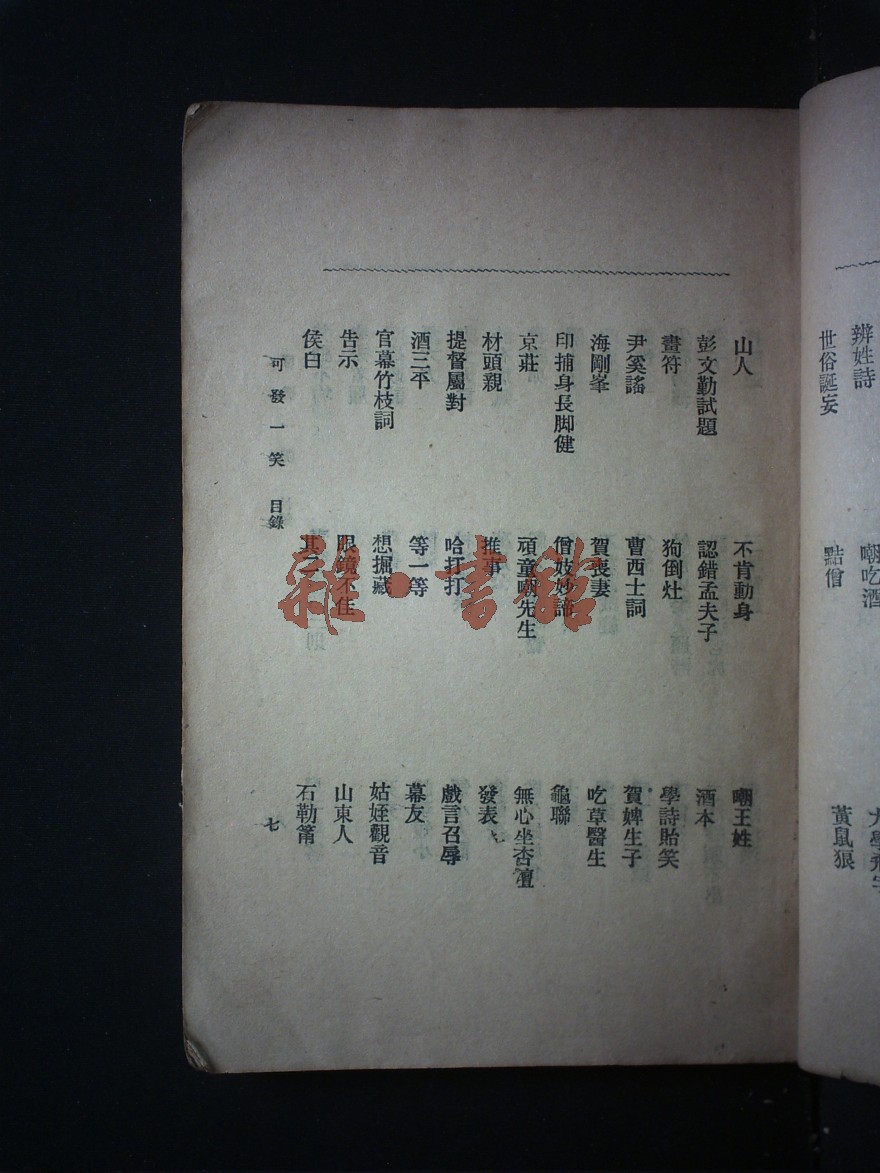 辨姓詩
嘲吃酒
世俗誕妄
點僧
黃鼠狼
山人
不肯動身
嘲王姓
彭文勤試題
認錯孟夫子
酒本
畫符
狗倒灶
學詩貽笑
尹奚謠
曹西士詞
賀婢生子
海剛峯
賀喪妻
吃草醫生
印捕身長脚健
僧妓妙諦
龜聯
京莊
頑童嘲先生
無心坐杏壇
材頭親
推事
發表
提督屬對
哈打打
戲言召辱
酒三平
等一等
幕友
官幕竹枝詞
想掘藏
姑姪觀音
告示
眼鏡不佳
山東人
侯白
其二
石勒筩
可發一笑 目錄
七
雜·書館